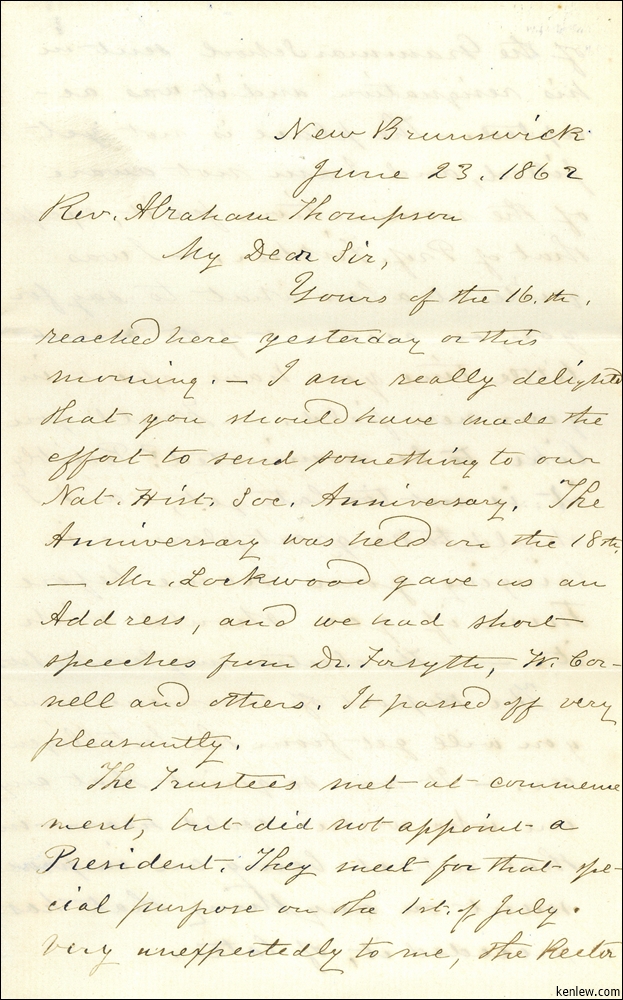 New Brunswick
June 23. 1862
Rev. Abraham Thompson
My Dear Sir,
Yours of the 16.th.
reached here yesterday or this
morning. — I am really delighted
that you should have made the
effort to send something to our
Nat. Hist. Soc. Anniversary. The
Anniversary was held on the 18th,
— Mr. Lockwood gave us an
Address, and we had short
speeches from Dr. Forsyth, W. Cor-
nell and others. It passed off very
pleasantly.
The Trustees met at commence
ment, but did not appoint a
President. They meet for that spe-
cial purpose on the 1st. of July.
Very unexpectedly to me, the Rector
kenlew.com